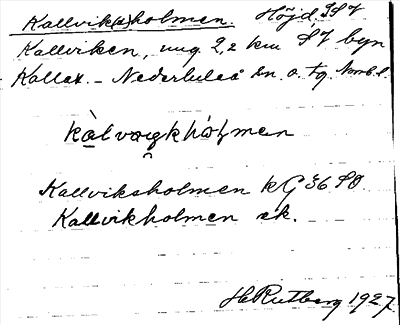 Kallvik(s)holmen. Höjd. IS7
Kallviken, ung. 2,2 km S7 byn
Kallax. - Nederluleå sn. o. tg. Nmb. l.
kàlvɑykhóḷmen
Kallviksholmen kG 36 SO.
Kallvikholmen ek.
H. Rutberg 1927